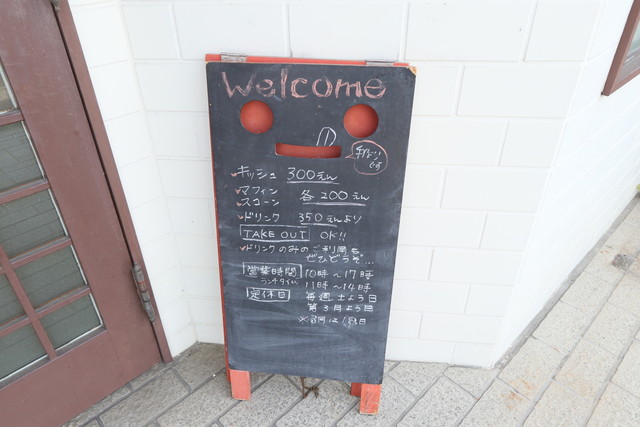 Welcome
手作り
です
キッシュ 300えん
マフィン
スコーン
各200えん
ドリンク 350えんより
TAKE OUT OK!!
ドリンクのみのご利用も
ぜひどうぞ...
営業時間 10時〜17時
ランチタイム 11時〜14時
定休日 毎週 土よう日
第3月よう日